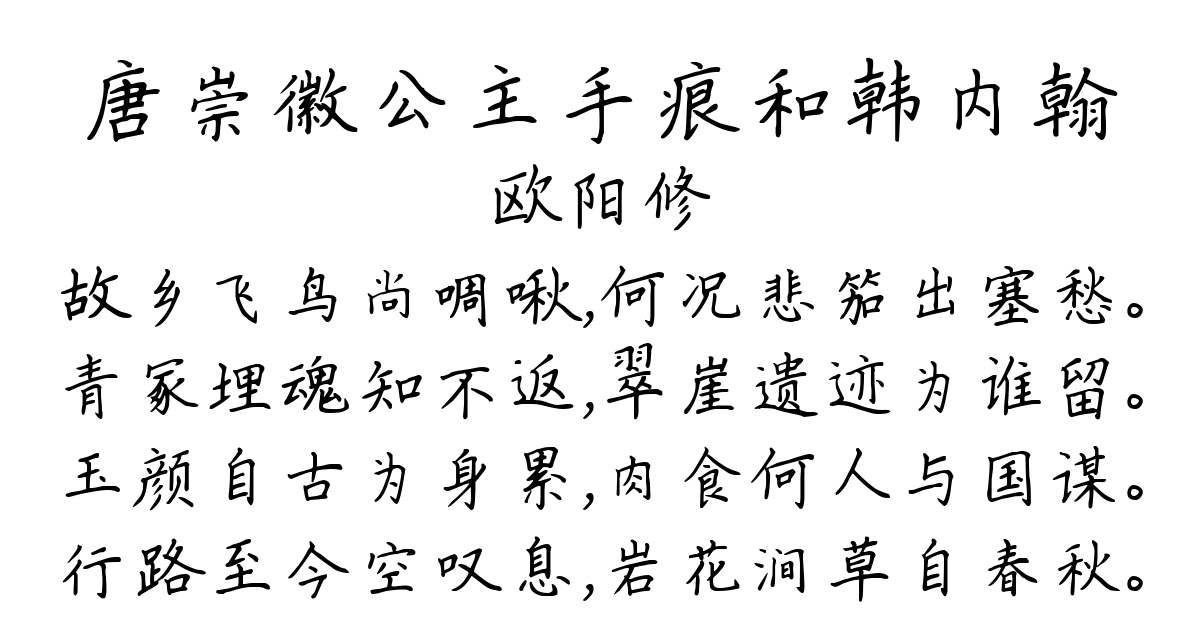 唐崇徽公主手痕和韩内翰
欧阳修
故乡飞鸟尚啁啾,何况悲笳出塞愁。
青冢埋魂知不返,翠崖遗迹为谁留。
玉颜自古为身累,肉食何人与国谋。
行路至今空叹息,岩花涧草自春秋。